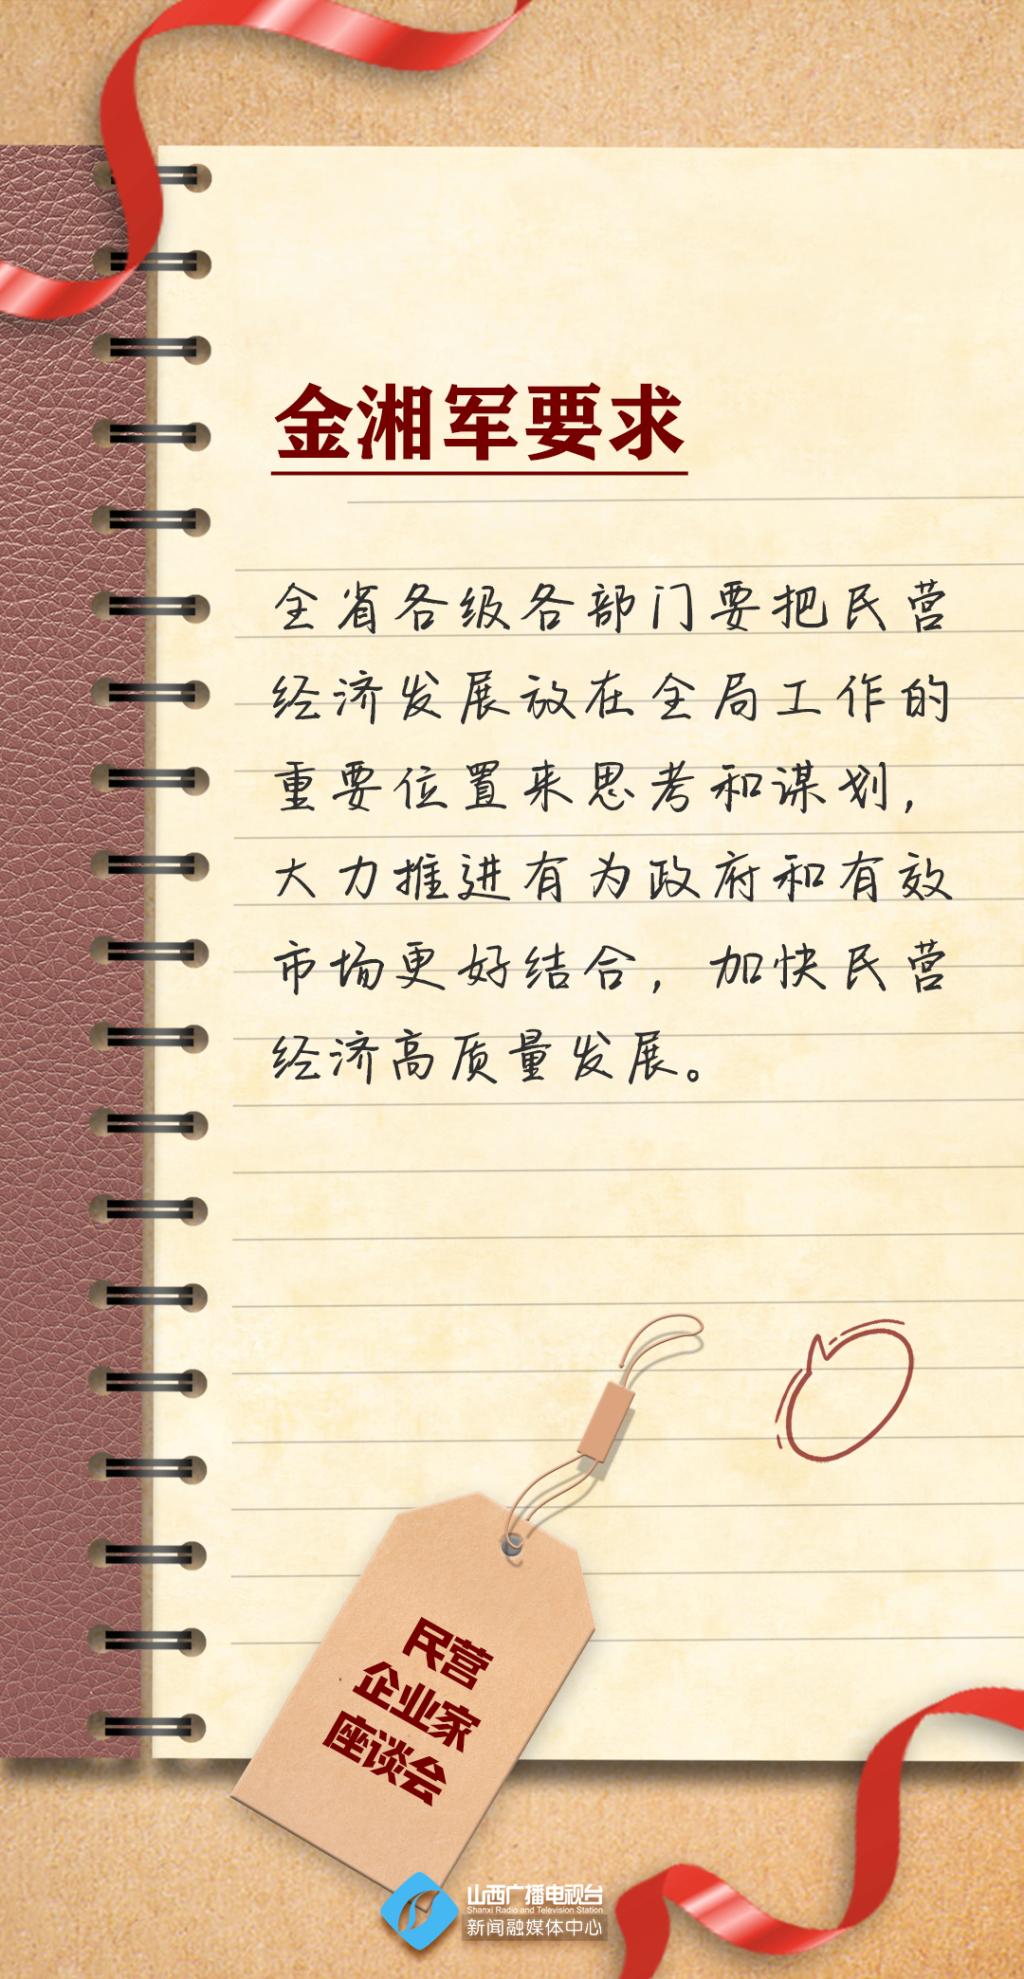 金湘军要求
全省各级各部门要把民营
经济发展放在全局工作的
重要位置来思考和谋划，
大力推进有为政府和有效
市场更好结合，加快民营
经济高质量发展。
民营
企业家
座谈会
山西广播电视台
Shanxi Radio and Television Station
新闻融媒体中心